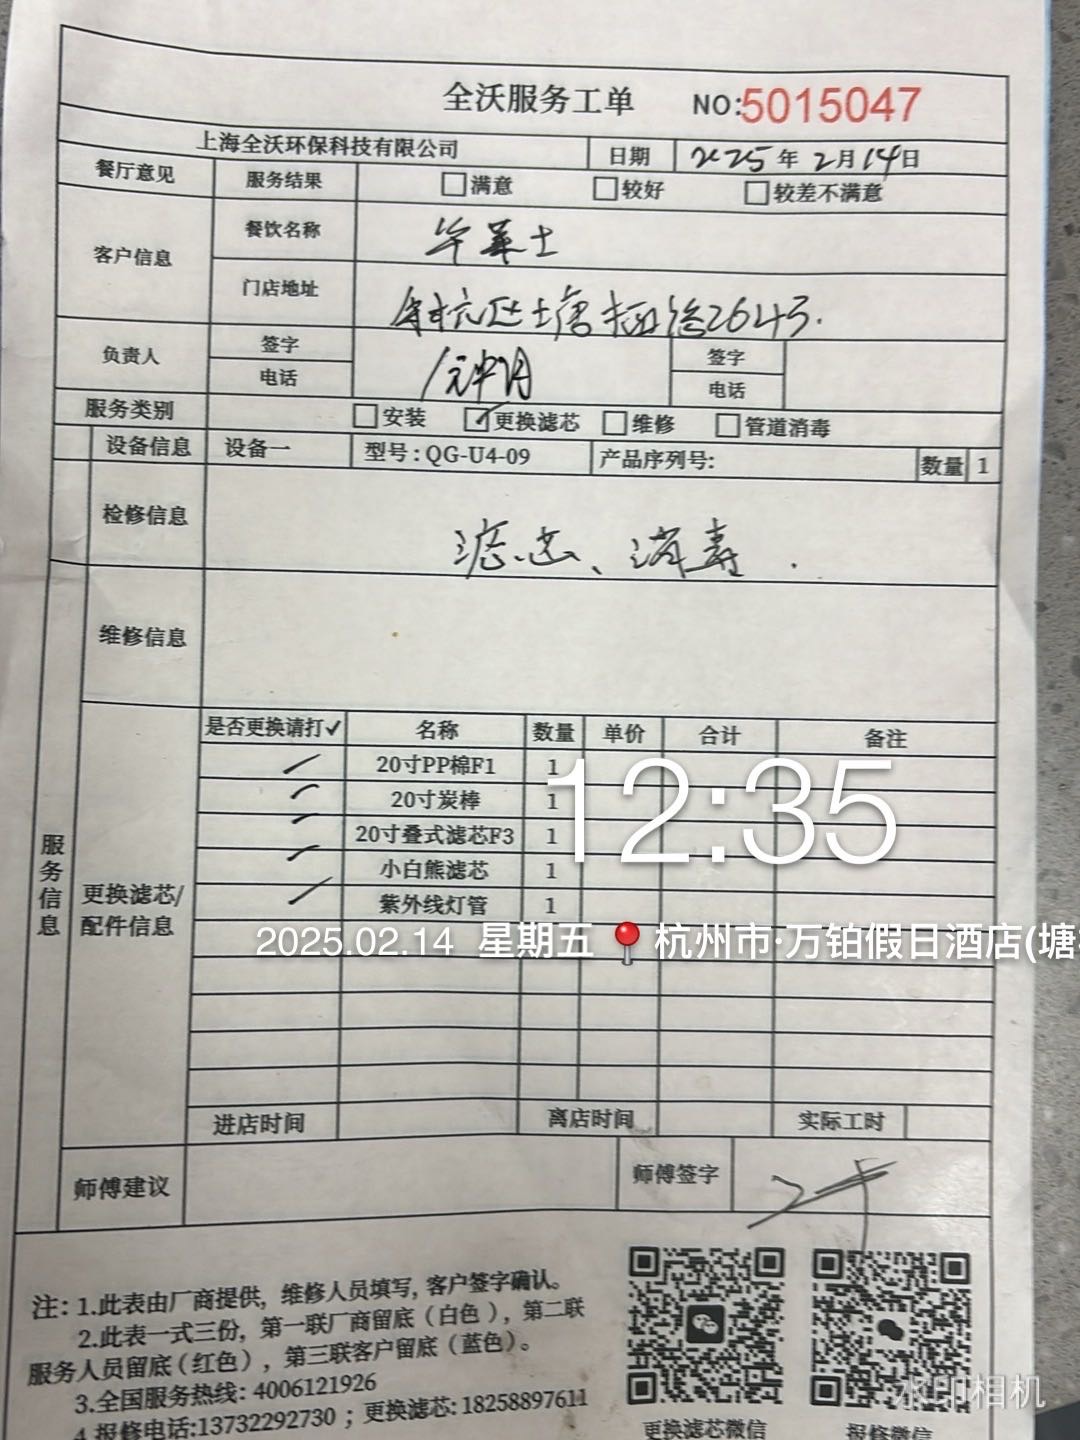 全沃服务工单 NO:5015047
上海全沃环保科技有限公司 日期 2025年2月14日
餐厅意见 服务结果 满意 较好 较差不满意
客户信息 餐饮名称 华莱士
门店地址 塘栖路264号.
负责人 签字 签字
电话 电话
服务类别 安装 更换滤芯 维修 管道消毒
设备信息 设备一 型号:QG-U4-09 产品序列号: 数量 1
检修信息 滤芯、消毒.
维修信息
服务信息
更换滤芯/配件信息
是否更换请打✓ 名称 数量 单价 合计 备注
20寸PP棉F1 1
20寸炭棒 1
20寸叠式滤芯F3 1
小白熊滤芯 1
紫外线灯管 1
12:35
2025.02.14 星期五 杭州市·万铂假日酒店(塘
进店时间 离店时间 实际工时
师傅建议 师傅签字
注:1.此表由厂商提供,维修人员填写,客户签字确认。
2.此表一式三份,第一联厂商留底(白色),第二联
服务人员留底(红色),第三联客户留底(蓝色)。
3.全国服务热线:4006121926
4.报修电话:13732292730;更换滤芯:18258897611
更换滤芯微信 报修微信
水印相机